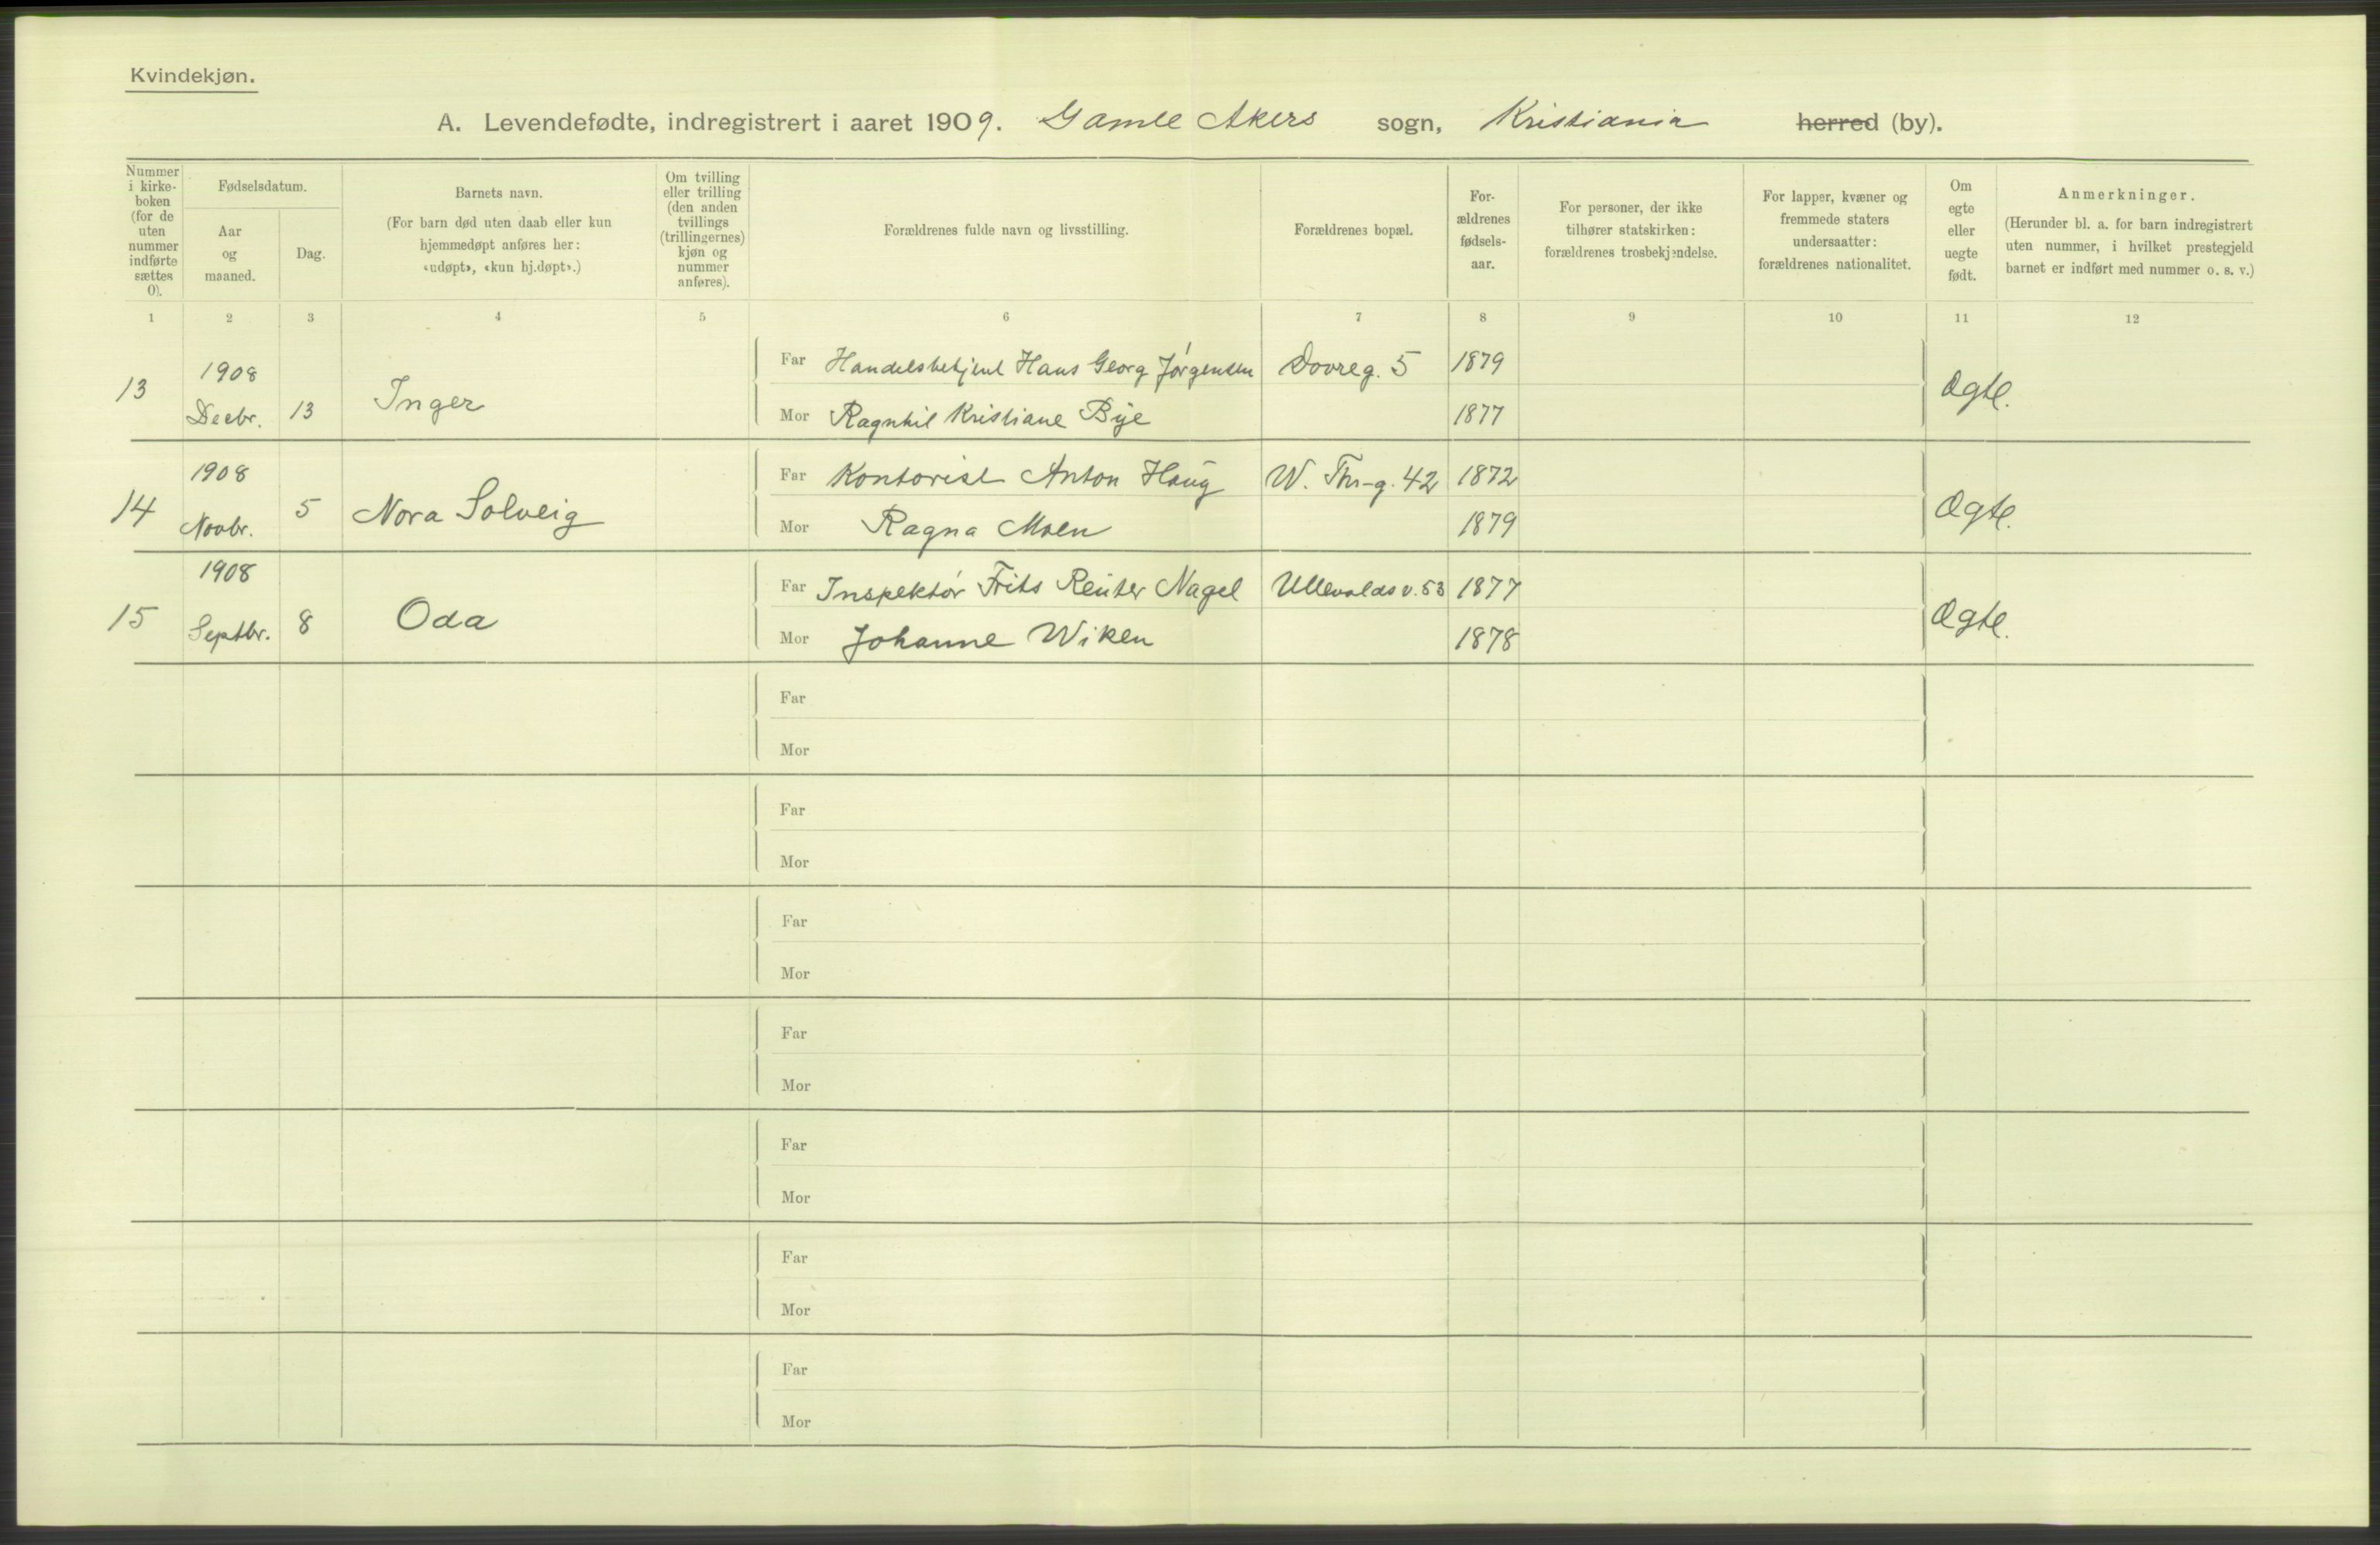 Kvindekjøn.
A. Levendefødte, indregistrert i aaret 1909. Gamle Akers sogn, Kristiania herred (by).
Nummer i kirkeboken (for de uten nummer indførte sættes 0).
Fødselsdatum.
Aar og maaned.
Dag.
Barnets navn.
(For barn død uten daab eller kun hjemmedøpt anføres her: «udøpt», «kun hj.døpt».)
Om tvilling eller trilling (den anden tvillings (trillingernes) kjøn og nummer anføres).
Forældrenes fulde navn og livsstilling.
Forældrenes bopæl.
Forældrenes fødselsaar.
For personer, der ikke tilhører statskirken: forældrenes trosbekjendelse.
For lapper, kvæner og fremmede staters undersaatter: forældrenes nationalitet.
Om egte eller uegte født.
Anmerkninger.
(Herunder bl. a. for barn indregistrert uten nummer, i hvilket prestegjeld barnet er indført med nummer o. s. v.)
1 2 3 4 5 6 7 8 9 10 11 12
13 1908 Decbr. 13 Inger
Far Handelsbetjent Hans Georg Jørgensen Dovreg. 5 1879 Ægte.
Mor Ragnhil Kristiane Bye 1877
14 1908 Novbr. 5 Nora Solveig
Far Kontorist Anton Haug W. Thr-g. 42 1872 Ægte.
Mor Ragna Moen 1879
15 1908 Septbr. 8 Oda
Far Inspektør Frits Reuter Nagel Ullevoldsv. 53 1877 Ægte.
Mor Johanne Wiken 1878
Far
Mor
Far
Mor
Far
Mor
Far
Mor
Far
Mor
Far
Mor
Far
Mor